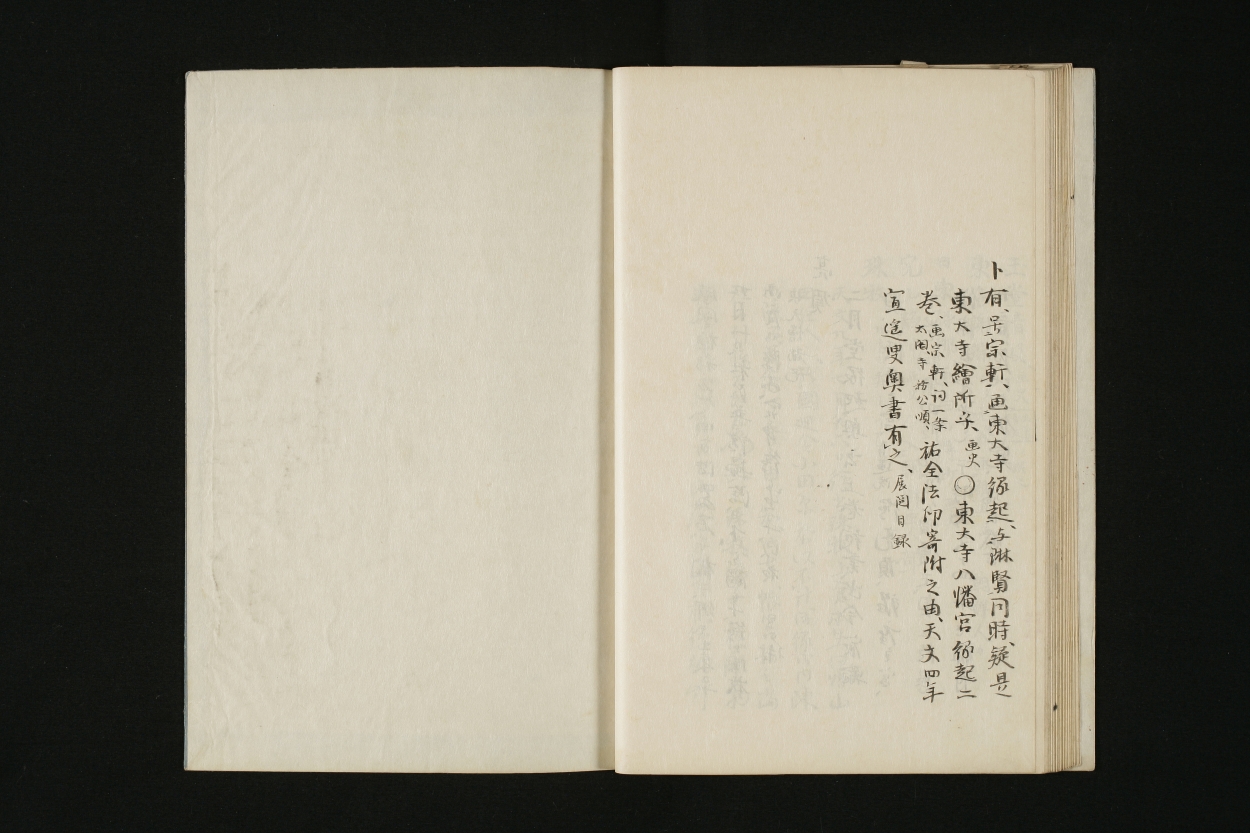 卜有、号宗軒、画東大寺縁起、与琳賢同時、疑是
東大寺繪所矣、画史〇東大寺八幡宮縁起二
巻、画宗軒、詞一条太閤寺務公順、祐全法印寄附之由、天文四年
宣逢叟奥書有之、展閲目録